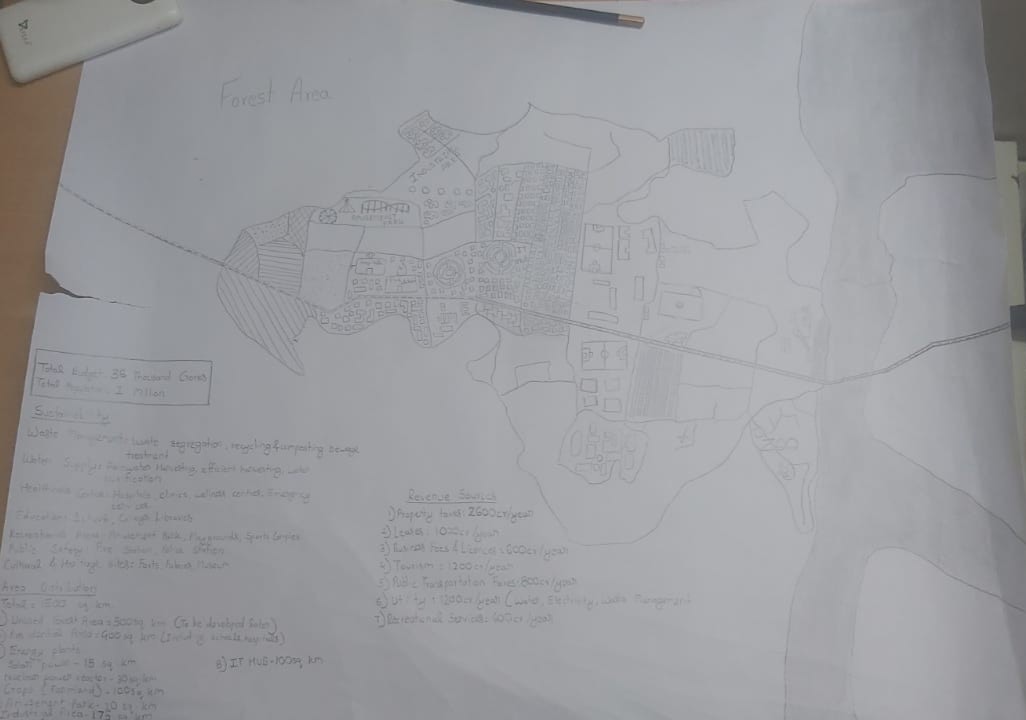 Forest Area
INDUSTRIAL AREA
AMUSEMENT PARK
Total Budget: 38 Thousand Crores
Total Population: 1 Million
Sustainability
Waste Management: Waste segregation, recycling & composting sewage
treatment
Water Supply: Rainwater Harvesting, efficient harvesting, water
purification
Healthcare Centres: Hospitals, clinics, wellness centres, Emergency
services
Education: Schools, Colleges, Libraries
Recreational Areas: Amusement Park, Playgrounds, Sports Complex
Public Safety: Fire Station, Police Station
Cultural & Heritage Sites: Forts, Museum
Area Distribution
Total = 1500 sq. km
1) Unused Forest Area = 500 sq. km (To be developed later)
2) Residential Area = 400 sq. km (Including schools, hospitals)
3) Energy plants
Solar power - 15 sq. km
Nuclear power reactor - 30 sq. km
Crops (Farmland) - 100 sq. km
Amusement Park - 10 sq. km
Industrial Area - 175 sq. km
8) IT HUB - 100 sq. km
Revenue Sources
1) Property taxes: 2600cr/year
2) Leases: 1000cr/year
3) Business Fees & Licences = 600cr/year
4) Tourism = 1200cr/year
5) Public Transportation Fares: 800cr/year
6) Utility = 1200cr/year (Water, Electricity, Waste Management
7) Recreational Services = 600cr/year